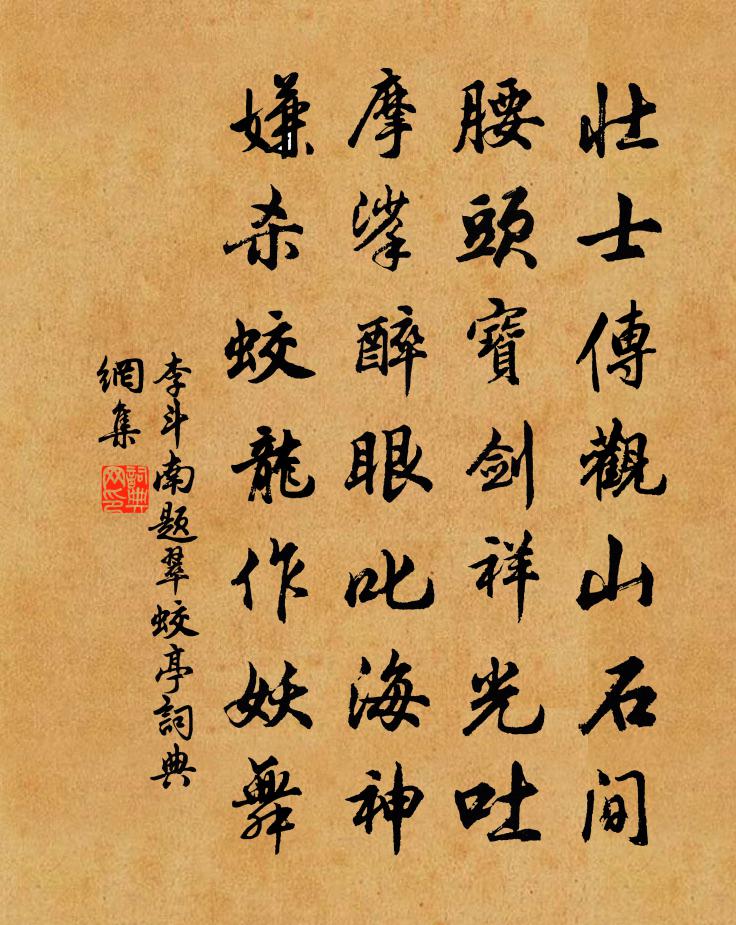 壮士傳觀山石间
腰頭寶剑祥光吐
摩挲醉眼叱海神
嫌杀蛟龍作妖舞
李斗南题翠蛟亭詞典
網集
詞典
网印